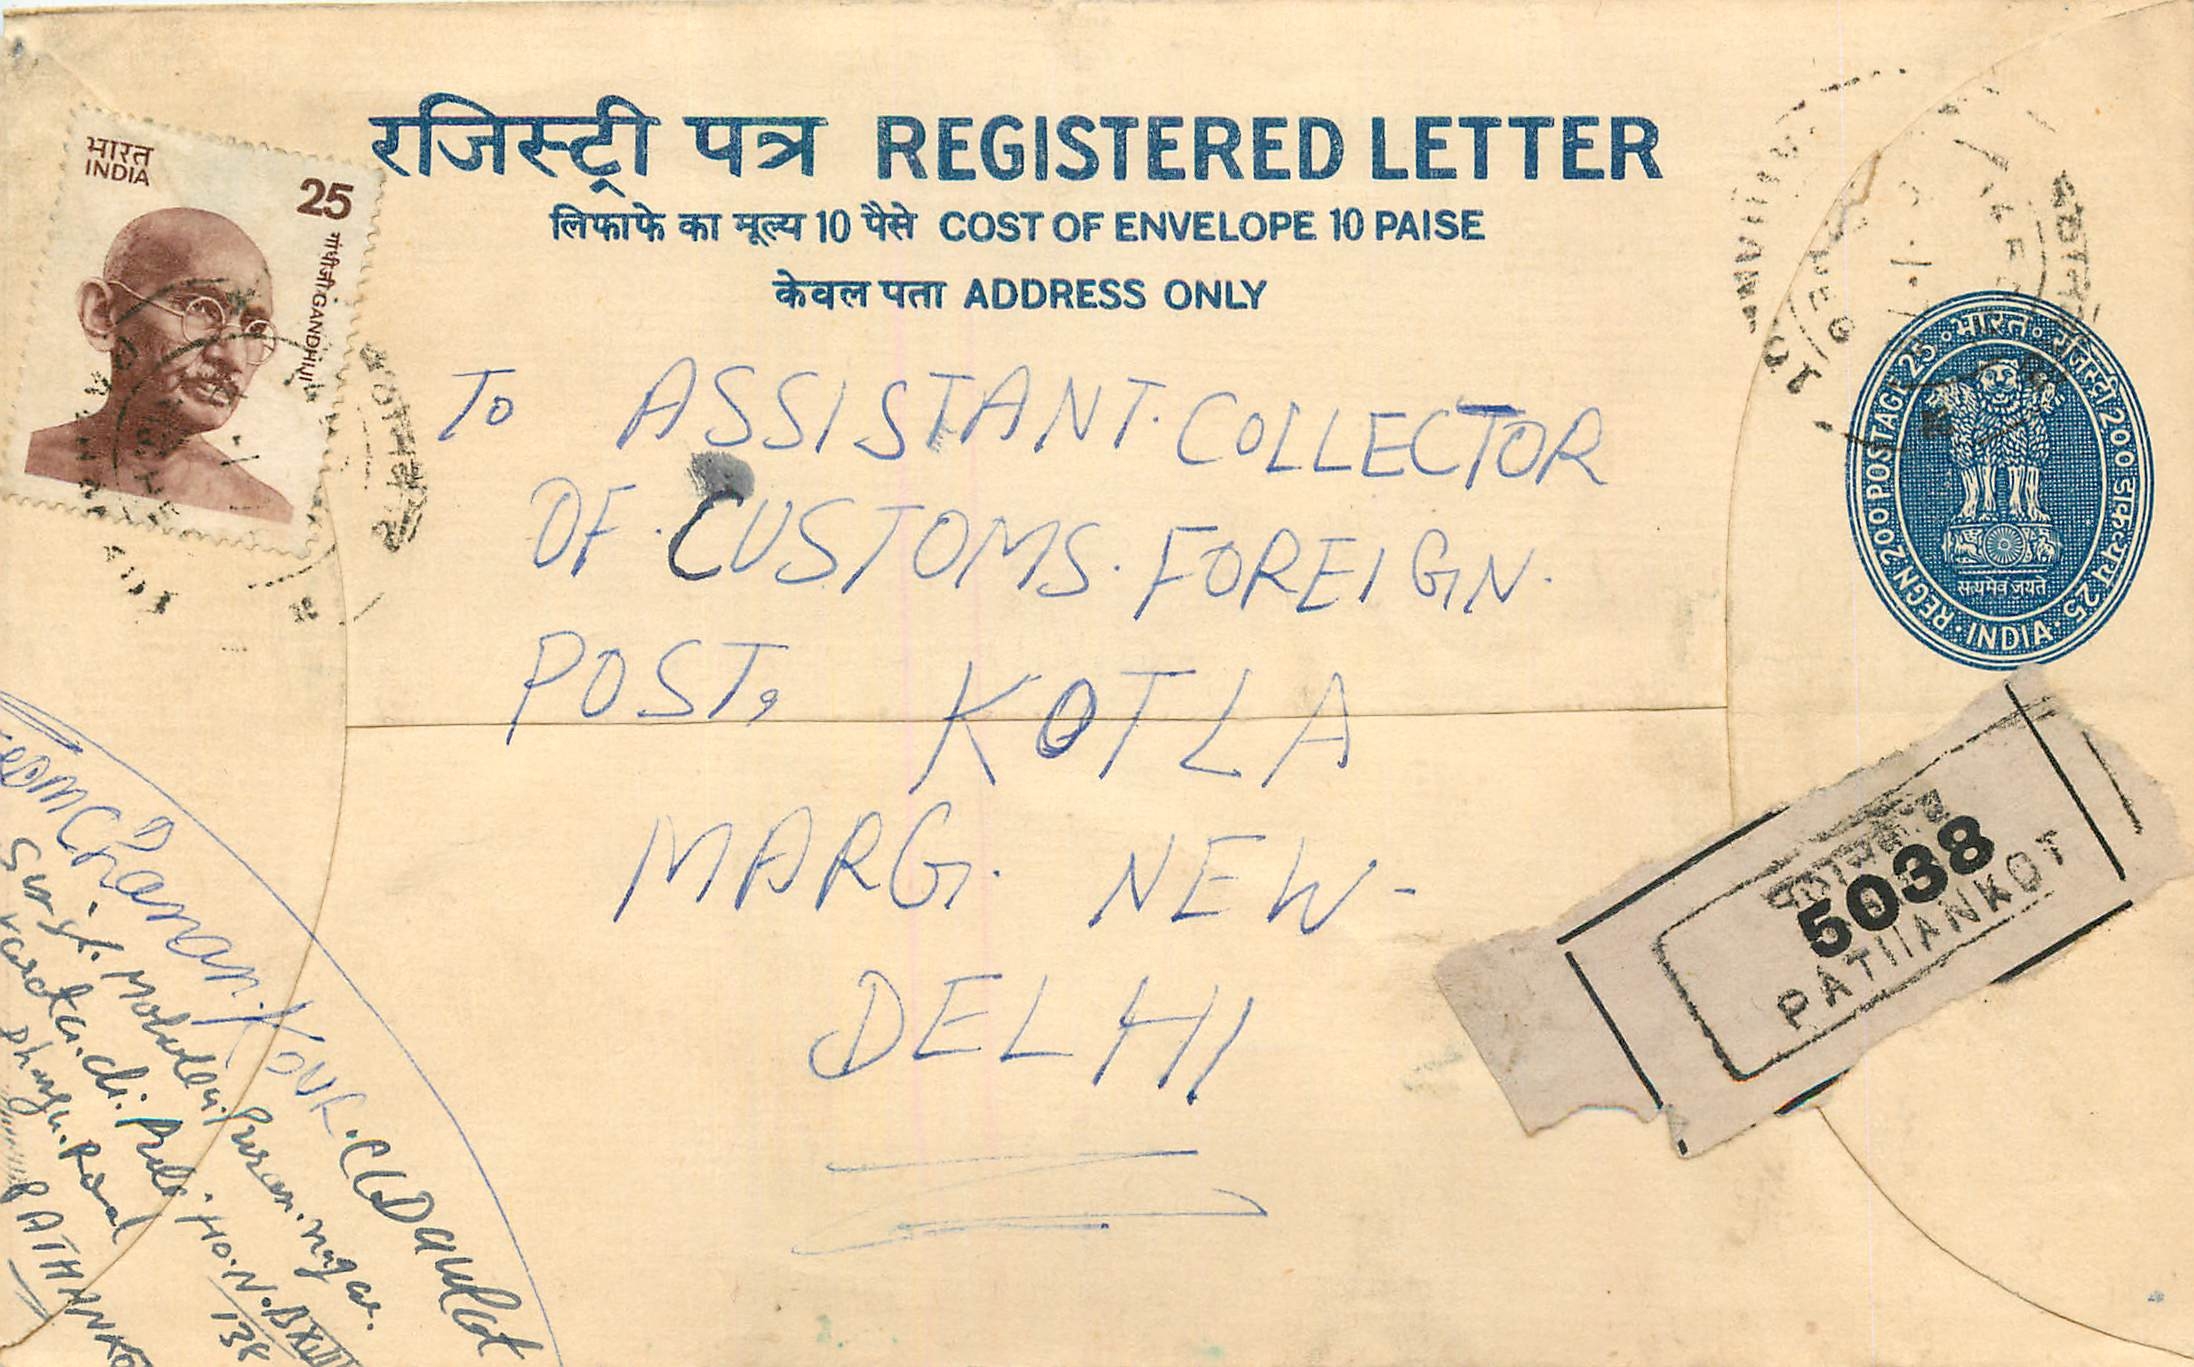 रजिस्ट्री पत्र REGISTERED LETTER
लिफाफे का मूल्य 10 पैसे COST OF ENVELOPE 10 PAISE
केवल पता ADDRESS ONLY
भारत
INDIA
25
गांधीजी GANDHIJI
To ASSISTANT. COLLECTOR
OF. CUSTOMS. FOREIGN.
POST, KOTLA
MARG. NEW-
DELHI
भारत रजिस्ट्री 200 डाक-व्यय 25
INDIA
REGN 200 POSTAGE 25
सत्यमेव जयते
पठानकोट
5038
PATHANKOT
Chanan. Kour. C/o Daulat
Singh. Mohalla. Puran. nagar.
di. Puli. HO. N.
138
Dhangu. Road
PATHANKO